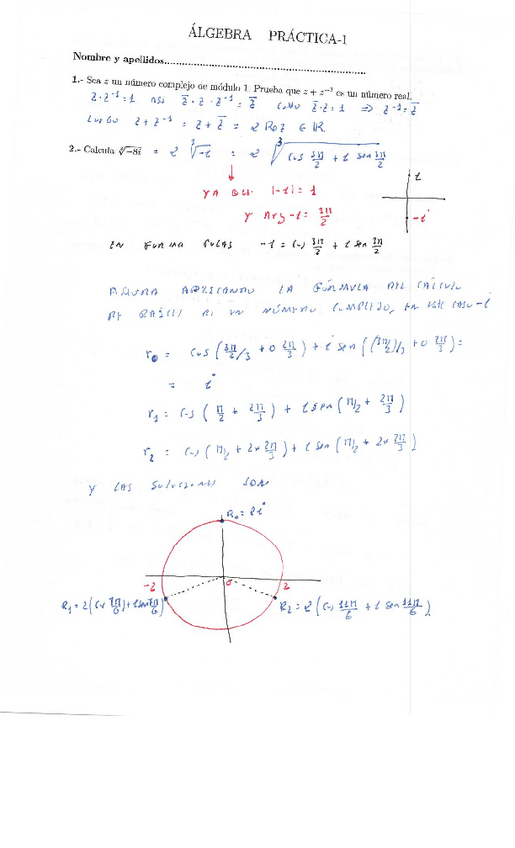 ÁLGEBRA PRÁCTICA-1
Nombre y apellidos
1.- Sea z un número complejo de módulo 1. Prueba que z + z⁻¹ es un número real.
z·z⁻¹ = 1 así z̅·z·z⁻¹ = z̅ como z̅·z = 1 ⇒ z⁻¹ = z̅
Luego z + z⁻¹ = z + z̅ = 2 Re z ∈ ℝ.
2.- Calcula ∛-8i = 2 ∛-i = 2 ∛cos 3π/2 + i sen 3π/2
i
-i
YA QUE |-i| = 1
Y Arg -i = 3π/2
EN FORMA POLAR -i = cos 3π/2 + i sen 3π/2
AHORA APLICANDO LA FÓRMULA DEL CÁLCULO
DE RAÍCES DE UN NÚMERO COMPLEJO, EN ESTE CASO -i
r₀ = cos (3π/2/3 + 0 2π/3) + i sen ((3π/2)/3 + 0 2π/3) =
= i
r₁ = cos (π/2 + 2π/3) + i sen (π/2 + 2π/3)
r₂ = cos (π/2 + 2× 2π/3) + i sen (π/2 + 2× 2π/3)
Y LAS SOLUCIONES SON
R₀ = 2i
-2 0 2
R₁ = 2(cos 7π/6 + i sen 7π/6)
R₂ = 2 (cos 11π/6 + i sen 11π/6).